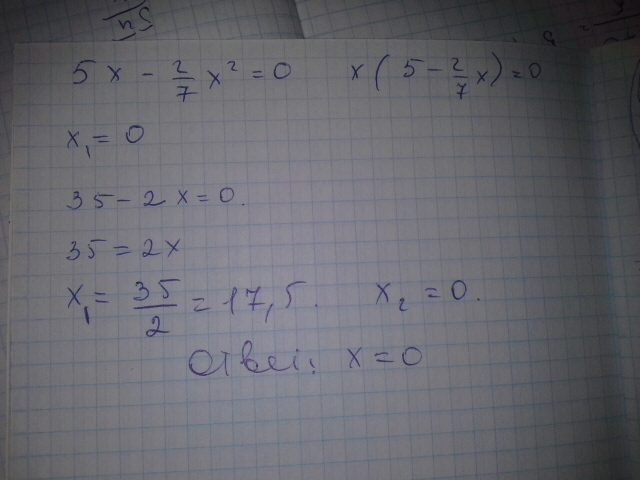 5x - 2/7 x² = 0    x(5 - 2/7 x) = 0
x₁ = 0
35 - 2x = 0.
35 = 2x
x₁ = 35/2 = 17,5.    x₂ = 0.
Ответ: x = 0